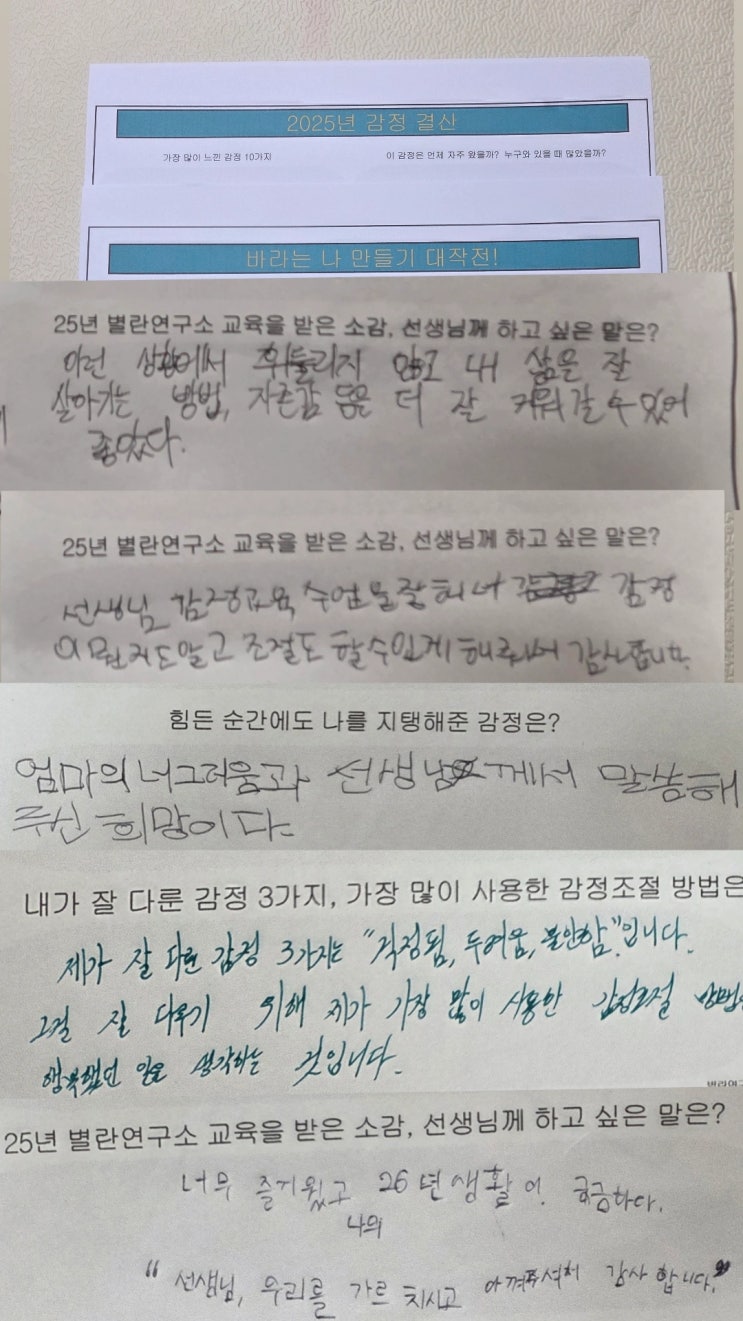 2025년 감정 결산
가장 많이 느낀 감정 10가지
이 감정은 언제 자주 왔을까? 누구와 있을 때 많았을까?
바라는 나 만들기 대작전!
25년 별란연구소 교육을 받은 소감, 선생님께 하고 싶은 말은?
이런 상황에서 휘둘리지 않고 내 삶을 잘
살아가는 방법, 자존감 등을 더 잘 키워갈 수 있어
좋았다.
25년 별란연구소 교육을 받은 소감, 선생님께 하고 싶은 말은?
선생님 감정교육 수업을 잘 감정
조절도 할수있게 해주셔서 감사합니다.
힘든 순간에도 나를 지탱해준 감정은?
엄마의 너그러움과 선생님께서 말씀해
주신 희망이다.
내가 잘 다룬 감정 3가지, 가장 많이 사용한 감정조절 방법은
제가 잘 다룬 감정 3가지는 "걱정됨, 두려움, 불안함"입니다.
그걸 잘 다루기 위해 제가 가장 많이 사용한 감정조절 방법은
행복했던 일을 생각하는 것입니다.
25년 별란연구소 교육을 받은 소감, 선생님께 하고 싶은 말은?
너무 즐거웠고 26년 생활이 궁금하다.
나의
"선생님, 우리를 가르치시고 아껴주셔서 감사합니다."